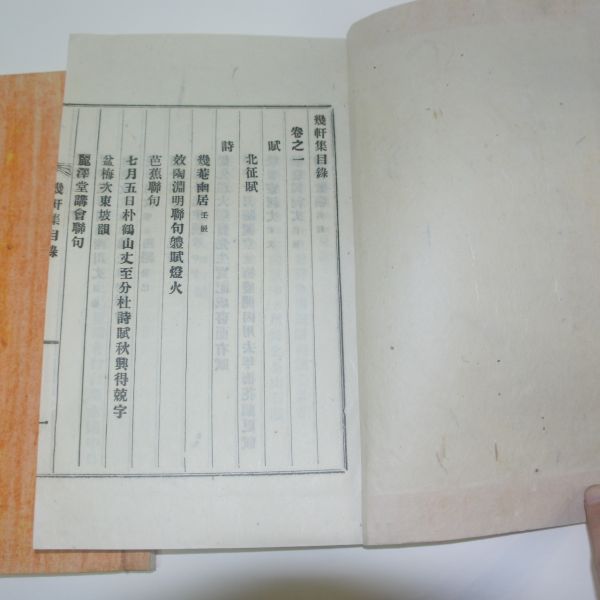 幾軒集目錄
卷之一
賦
北征賦
詩
幾菴幽居
效陶淵明聯句體賦燈火
芭蕉聯句
七月五日朴鶴山丈至分杜詩賦秋興得兢字
盆梅次東坡韻
麗澤堂講會聯句
幾軒集目錄
一